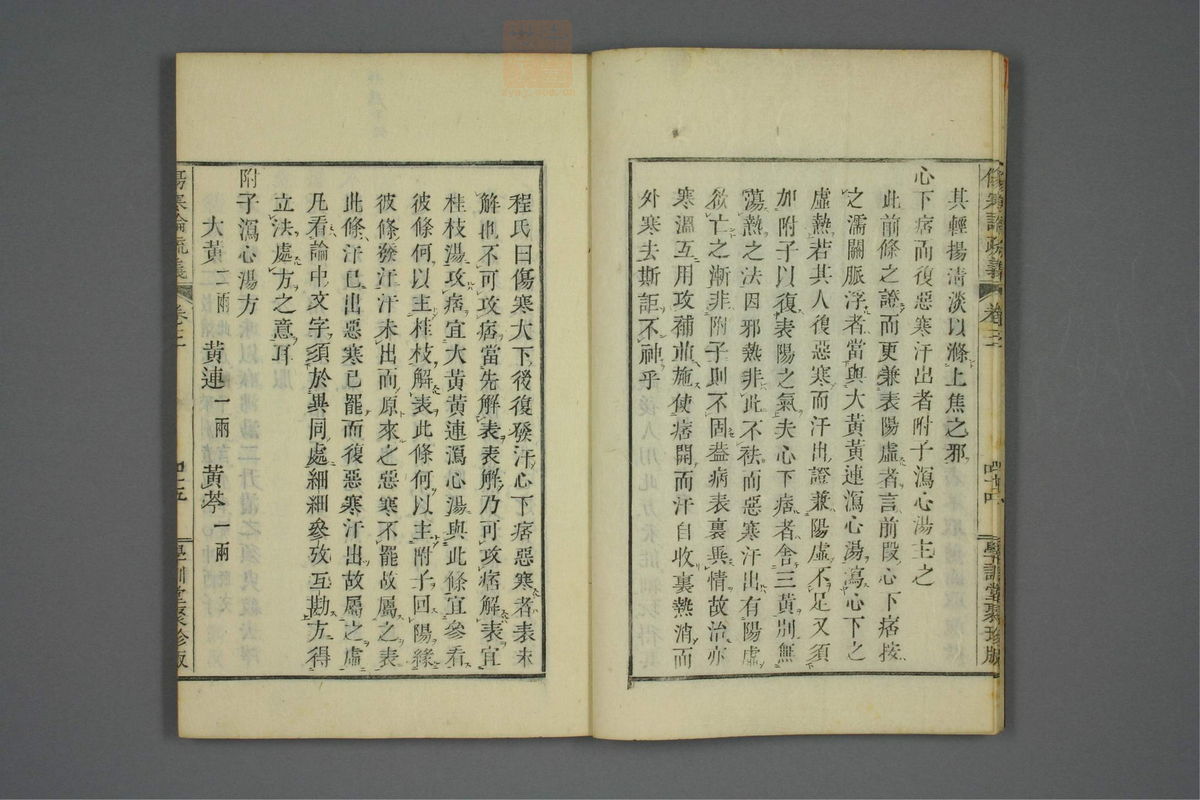 其輕揚淸淡以滌上焦之邪
心下痞而復惡寒汗出者附子瀉心湯主之
此前條之證而更兼表陽虛者言前段心下痞按
之濡關脈浮者當與大黃黃連瀉心湯瀉心下之
虛熱若其人復惡寒而汗出證兼陽虛不足又須
加附子以復表陽之氣夫心下痞者舍三黃別無
蕩熱之法因邪熱非此不祛而惡寒汗出有陽虛
欲亡之漸非附子則不固葢病表裏異情故治亦
寒溫互用攻補並施使痞開而汗自收裏熱消而
外寒去斯詎不神乎
傷寒論疏義
卷三
四十四
學訓堂聚珍版
程氏曰傷寒大下後復發汗心下痞惡寒者表未
解也不可攻痞當先解表表解乃可攻痞解表宜
桂枝湯攻痞宜大黃黃連瀉心湯與此條宜參看
彼條何以主桂枝解表此條何以主附子回陽緣
彼條發汗汗未出而原來之惡寒不罷故屬之表
此條汗已出惡寒已罷而復惡寒汗出故屬之虛
凡看論中文字須於異同處細細參攷互勘方得
立法處方之意耳
附子瀉心湯方
大黃二兩　黃連一兩　黃芩一兩
傷寒論疏義
卷三
四十五
學訓堂聚珍版